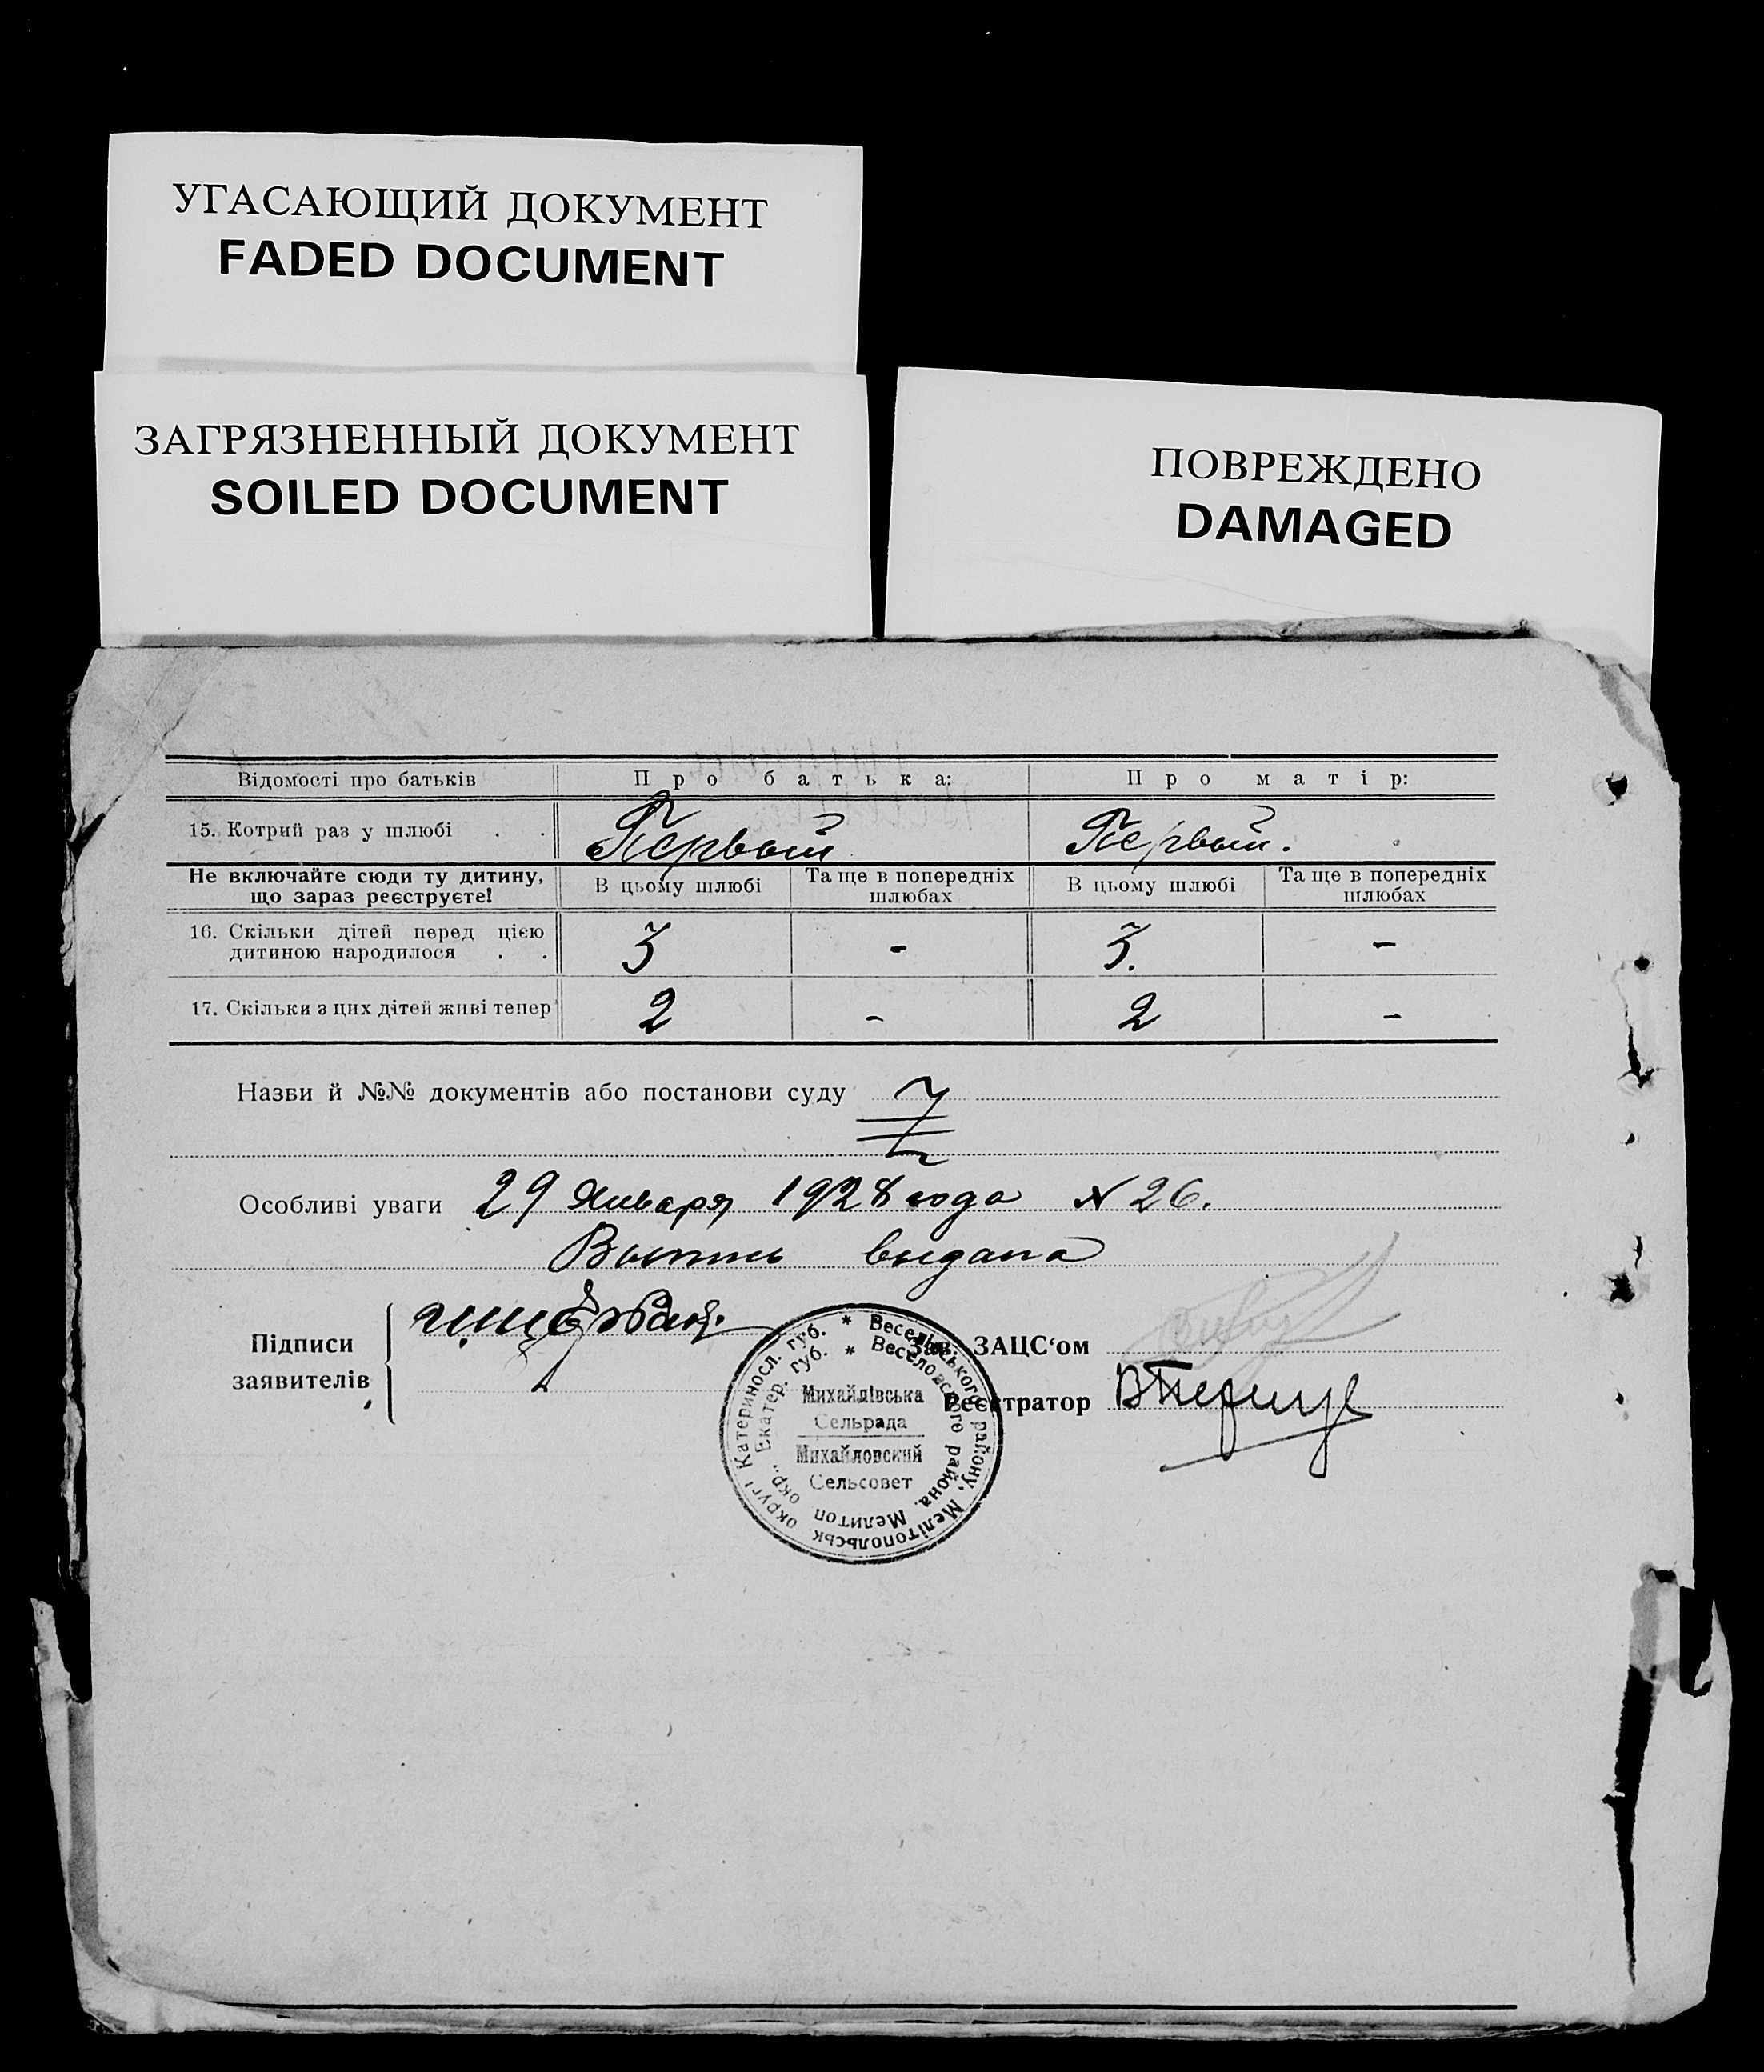 УГАСАЮЩИЙ ДОКУМЕНТ
FADED DOCUMENT
ЗАГРЯЗНЕННЫЙ ДОКУМЕНТ
SOILED DOCUMENT
ПОВРЕЖДЕНО
DAMAGED
Відомості про батьків Про батька: Про матір:
15. Котрий раз у шлюбі . . Первый Первый.
Не включайте сюди ту дитину, що зараз реєструєте! В цьому шлюбі Та ще в попередніх шлюбах В цьому шлюбі Та ще в попередніх шлюбах
16. Скільки дітей перед цією дитиною народилося . . 3 - 3. -
17. Скільки з цих дітей живі тепер 2 - 2 -
Назви й №№ документів або постанови суду
Особливі уваги 29 Января 1928 года № 26.
Выпись выдана
Підписи заявителів
Зав. ЗАЦС‘ом
Реєстратор
* Веселівського району, Мелітопольськ округі Катериносл. губ.
* Веселовского района, Мелитоп окр., Екатер. губ.
Михайлівська
Сельрада
Михайловский
Сельсовет